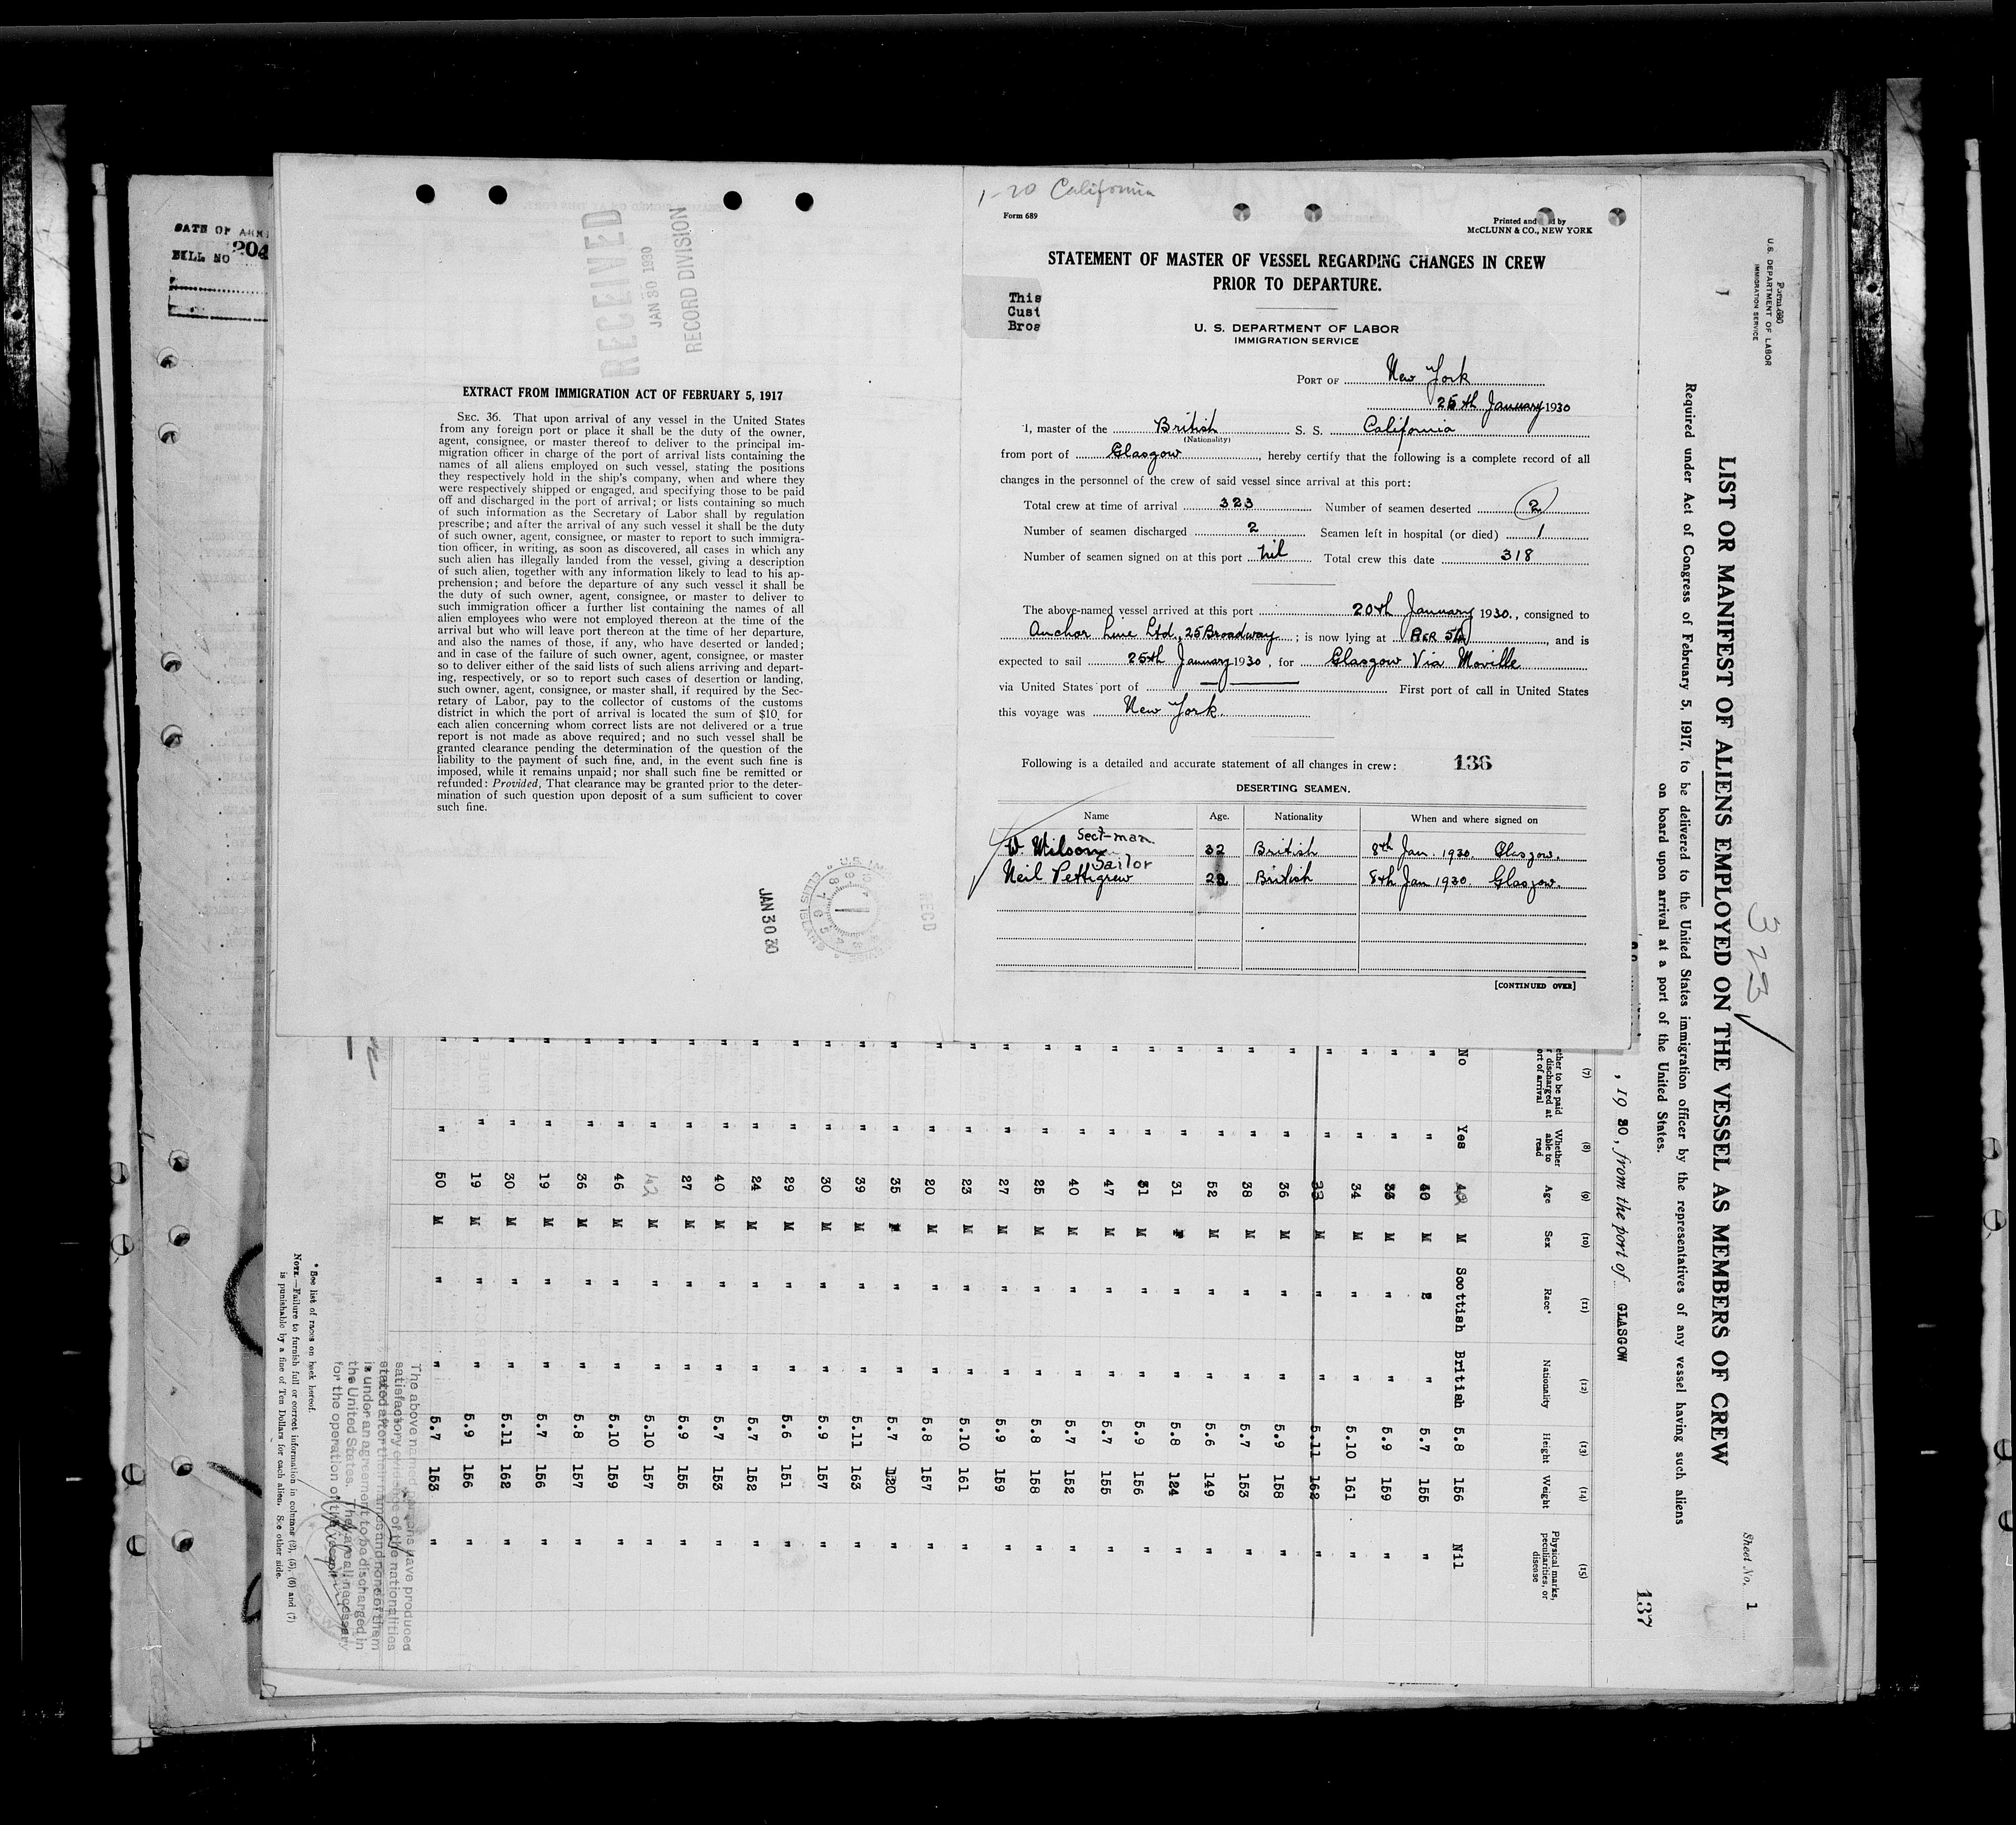 DATE OF ARRI
BILL NO 204
RECEIVED
JAN 30 1930
RECORD DIVISION
EXTRACT FROM IMMIGRATION ACT OF FEBRUARY 5, 1917
SEC. 36. That upon arrival of any vessel in the United States
from any foreign port or place it shall be the duty of the owner,
agent, consignee, or master thereof to deliver to the principal im-
migration officer in charge of the port of arrival lists containing the
names of all aliens employed on such vessel, stating the positions
they respectively hold in the ship's company, when and where they
were respectively shipped or engaged, and specifying those to be paid
off and discharged in the port of arrival; or lists containing so much
of such information as the Secretary of Labor shall by regulation
prescribe; and after the arrival of any such vessel it shall be the duty
of such owner, agent, consignee, or master to report to such immigra-
tion officer, in writing, as soon as discovered, all cases in which any
such alien has illegally landed from the vessel, giving a description
of such alien, together with any information likely to lead to his ap-
prehension; and before the departure of any such vessel it shall be
the duty of such owner, agent, consignee, or master to deliver to
such immigration officer a further list containing the names of all
alien employees who were not employed thereon at the time of the
arrival but who will leave port thereon at the time of her departure,
and also the names of those, if any, who have deserted or landed;
and in case of the failure of such owner, agent, consignee, or master
so to deliver either of the said lists of such aliens arriving and depart-
ing, respectively, or so to report such cases of desertion or landing,
such owner, agent, consignee, or master shall, if required by the Sec-
retary of Labor, pay to the collector of customs of the customs
district in which the port of arrival is located the sum of $10 for
each alien concerning whom correct lists are not delivered or a true
report is not made as above required; and no such vessel shall be
granted clearance pending the determination of the question of the
liability to the payment of such fine, and, in the event such fine is
imposed, while it remains unpaid; nor shall such fine be remitted or
refunded: Provided, That clearance may be granted prior to the deter-
mination of such question upon deposit of a sum sufficient to cover
such fine.
JAN 30 30
REC'D
1-20 California
Form 689
Printed and by
McCLUNN & CO., NEW YORK
STATEMENT OF MASTER OF VESSEL REGARDING CHANGES IN CREW
PRIOR TO DEPARTURE.
This
Cust
Bros
U. S. DEPARTMENT OF LABOR
IMMIGRATION SERVICE
PORT OF New York
25th January 1930
I, master of the British S. S. California
(Nationality)
from port of Glasgow, hereby certify that the following is a complete record of all
changes in the personnel of the crew of said vessel since arrival at this port:
Total crew at time of arrival 323 Number of seamen deserted 2
Number of seamen discharged 2 Seamen left in hospital (or died) 1
Number of seamen signed on at this port nil Total crew this date 318
The above-named vessel arrived at this port 20th January 1930., consigned to
Anchor Line Ltd., 25 Broadway; is now lying at Pier 56, and is
expected to sail 25th January 1930, for Glasgow Via Moville
via United States port of First port of call in United States
this voyage was New York.
Following is a detailed and accurate statement of all changes in crew: 136
DESERTING SEAMEN.
Name Age. Nationality When and where signed on
Sect-man
W. Wilson 32 British 8th Jan. 1930. Glasgow.
Sailor
Neil Pettigrew 22 British 8th Jan 1930 Glasgow.
[CONTINUED OVER]
Form 680
U. S. DEPARTMENT OF LABOR
IMMIGRATION SERVICE
323
Sheet No. 1
LIST OR MANIFEST OF ALIENS EMPLOYED ON THE VESSEL AS MEMBERS OF CREW
Required under Act of Congress of February 5, 1917, to be delivered to the United States immigration officer by the representatives of any vessel having such aliens
on board upon arrival at a port of the United States.
137
, 1930, from the port of GLASGOW
(7) (8) (9) (10) (11) (12) (13) (14) (15)
ether to be paid r discharged at ort of arrival Whether able to read Age Sex Race* Nationality Height Weight Physical marks, peculiarities, or disease
No Yes M Scottish British 5.8 156 Nil
" " 40 M " " 5.7 155 "
" " 33 M " " 5.9 159 "
" " 34 M " " 5.10 161 "
" " 33 M " " 5.11 162 "
" " 36 M " " 5.9 158 "
" " 38 M " " 5.7 153 "
" " 52 M " " 5.6 149 "
" " 31 F " " 5.8 124 "
" " 31 M " " 5.9 156 "
" " 47 M " " 5.7 155 "
" " 40 M " " 5.7 152 "
" " 25 M " " 5.8 158 "
" " 27 M " " 5.9 159 "
" " 23 M " " 5.10 161 "
" " 20 M " " 5.8 157 "
" " 35 F " " 5.7 120 "
" " 39 M " " 5.11 163 "
" " 30 M " " 5.9 157 "
" " 29 M " " 5.6 151 "
" " 24 M " " 5.7 152 "
" " 40 M " " 5.7 153 "
" " 27 M " " 5.9 155 "
" " 42 M " " 5.10 157 "
" " 46 M " " 5.10 159 "
" " 36 M " " 5.8 157 "
" " 19 M " " 5.7 156 "
" " 30 M " " 5.11 162 "
" " 19 M " " 5.9 156 "
" " 50 M " " 5.7 153 "
The above named persons have produced
satisfactory evidence of the nationalities
stated after their names and none of them
is under an agreement to be discharged in
the United States. They are all necessary
for the operation of the vessel.
* See list of races on back hereof.
NOTE.—Failure to furnish full or correct information in columns (2), (5), (6) and (7)
is punishable by a fine of Ten Dollars for each alien. See other side.